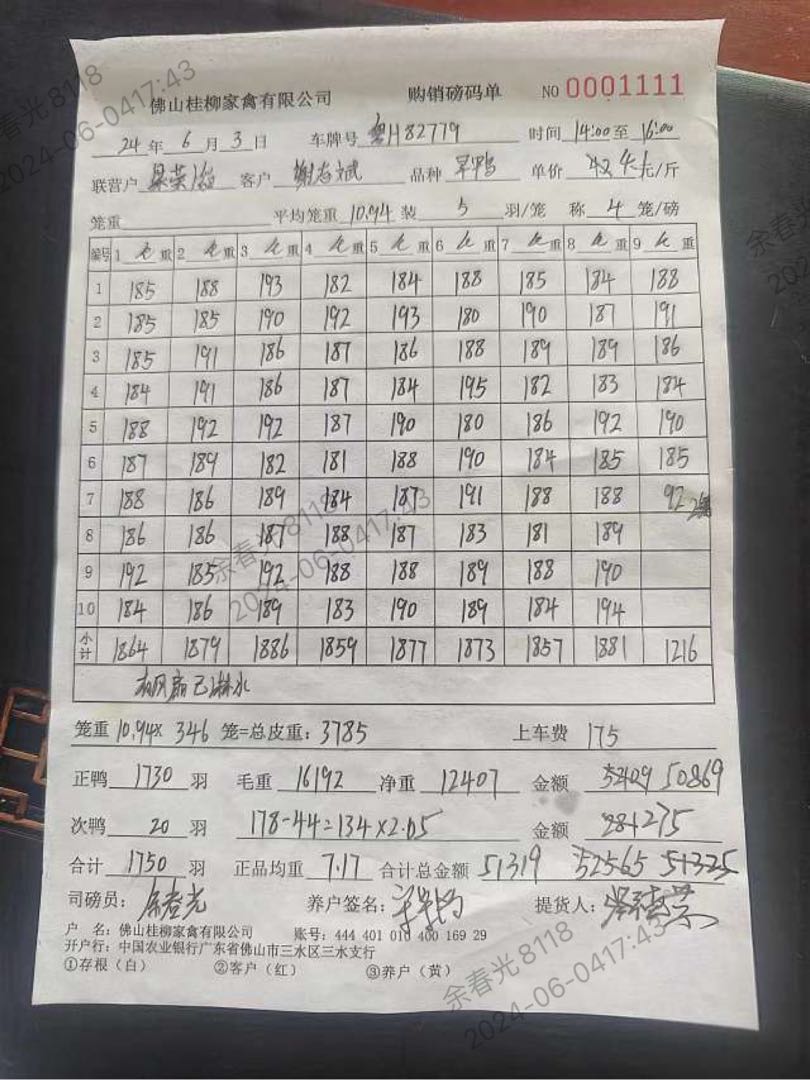 佛山桂柳家禽有限公司 购销磅码单 NO 0001111
24 年 6 月 3 日 车牌号 粤H82779 时间 14:00 至 16:00
联营户 客户 谢志斌 品种 单价 元/斤
笼重 平均笼重 10.94 装 5 羽/笼 称 4 笼/磅
编号 1 毛 重 2 毛 重 3 毛 重 4 毛 重 5 毛 重 6 毛 重 7 毛 重 8 毛 重 9 毛 重
1 185 188 193 182 184 188 185 184 188
2 185 185 190 192 193 180 190 187 191
3 185 191 186 187 186 188 189 189 186
4 184 191 186 187 184 195 182 183 184
5 188 192 192 187 190 180 186 192 190
6 187 189 182 181 188 190 184 185 185
7 188 186 189 184 187 191 188 188 92 2笼
8 186 186 187 188 187 183 181 189
9 192 185 192 188 188 189 188 190
10 184 186 189 183 190 189 184 194
小计 1864 1879 1886 1859 1877 1873 1857 1881 1216
有风扇已淋水
笼重 10.94× 346 笼=总皮重: 3785 上车费 175
正鸭 1730 羽 毛重 16192 净重 12407 金额 50869
次鸭 20 羽 178-44=134×2.05 金额 275
合计 1750 羽 正品均重 7.17 合计总金额 51319 52565 51325
司磅员: 余春光 养户签名: 提货人:
户 名: 佛山桂柳家禽有限公司 账号: 444 401 010 400 169 29
开户行: 中国农业银行广东省佛山市三水区三水支行
①存根（白） ②客户（红） ③养户（黄）
余春光 8118
2024-06-04 17:43
余春光 8118
2024-06-04 17:43
余春光 8118
2024-06-04 17:43
余春光
202